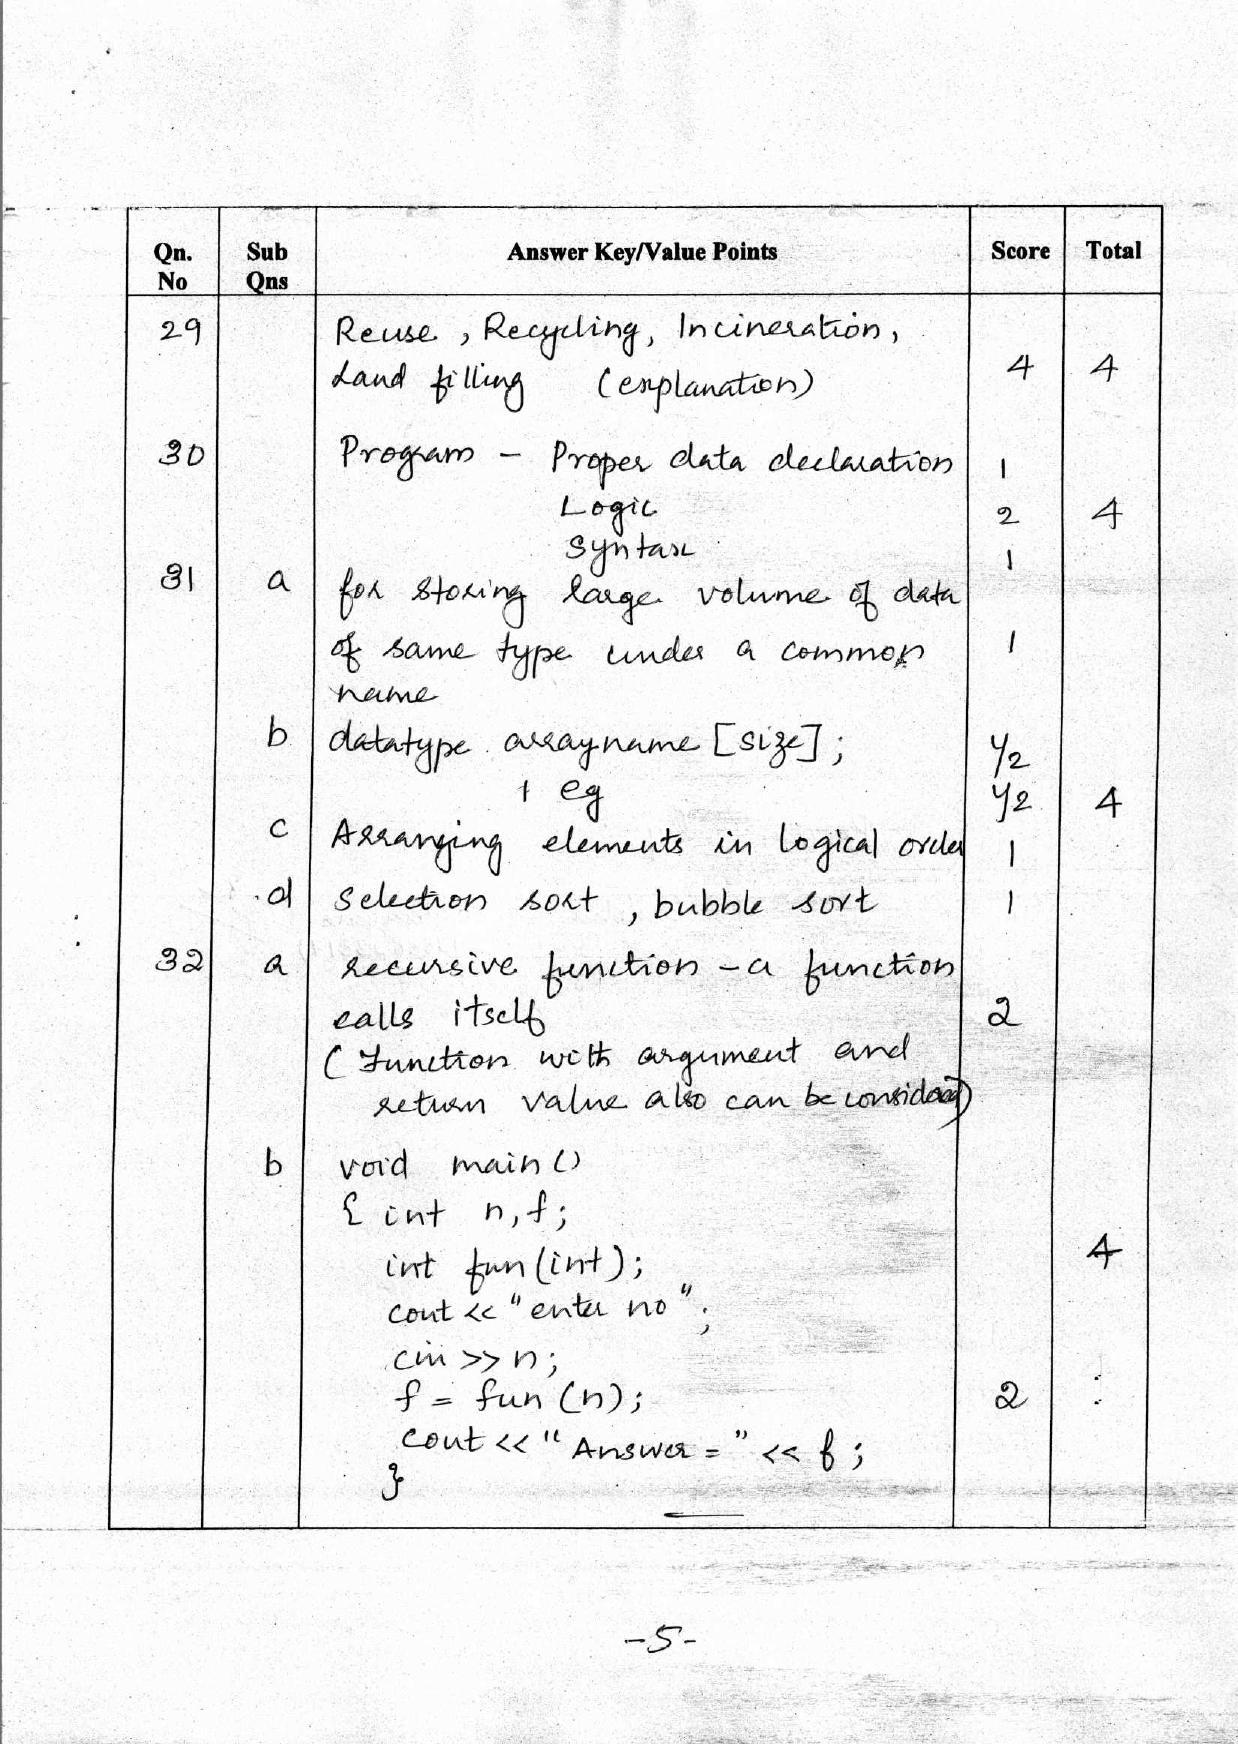 Qn. No Sub Qns Answer Key/Value Points Score Total
29 Reuse, Recycling, Incineration,
Land filling (explanation) 4 4
30 Program - Proper data declaration 1
Logic 2 4
Syntax 1
31 a for storing large volume of data
of same type under a common 1
name
b datatype arrayname [size]; 1/2
+ eg 1/2 4
c Arranging elements in logical order 1
d selection sort, bubble sort 1
32 a recursive function - a function
calls itself 2
(Function with argument and
return value also can be considered)
b void main()
{ int n, f;
int fun(int); 4
cout << "enter no";
cin >> n;
f = fun(n); 2
cout << "Answer = " << f;
}
-5-